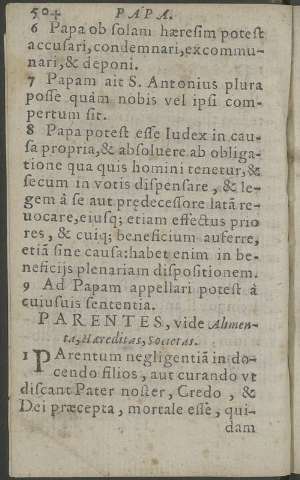 504 PAPA.
6 Papa ob solam hæresim potest
accusari, condemnari, excommu-
nari, & deponi.
7 Papam ait S. Antonius plura
posse quàm nobis vel ipsi com-
pertum sit.
8 Papa potest esse Iudex in cau-
sa propria, & absoluere ab obliga-
tione qua quis homini tenetur, &
secum in votis dispensare, & le-
gem à se aut prędecessore latã re-
uocare, eiusq; etiam effectus prio
res, & cuiq; beneficium auferre,
etiã sine causa: habet enim in be-
neficijs plenariam dispositionem.
9 Ad Papam appellari potest à
cuiusuis sententia.
PARENTES, vide Alimen-
ta, Hæreditas, Societas.
1 PArentum negligentiã in do-
cendo filios, aut curando vt
discant Pater noster, Credo, &
Dei præcepta, mortale esse, qui-
dam